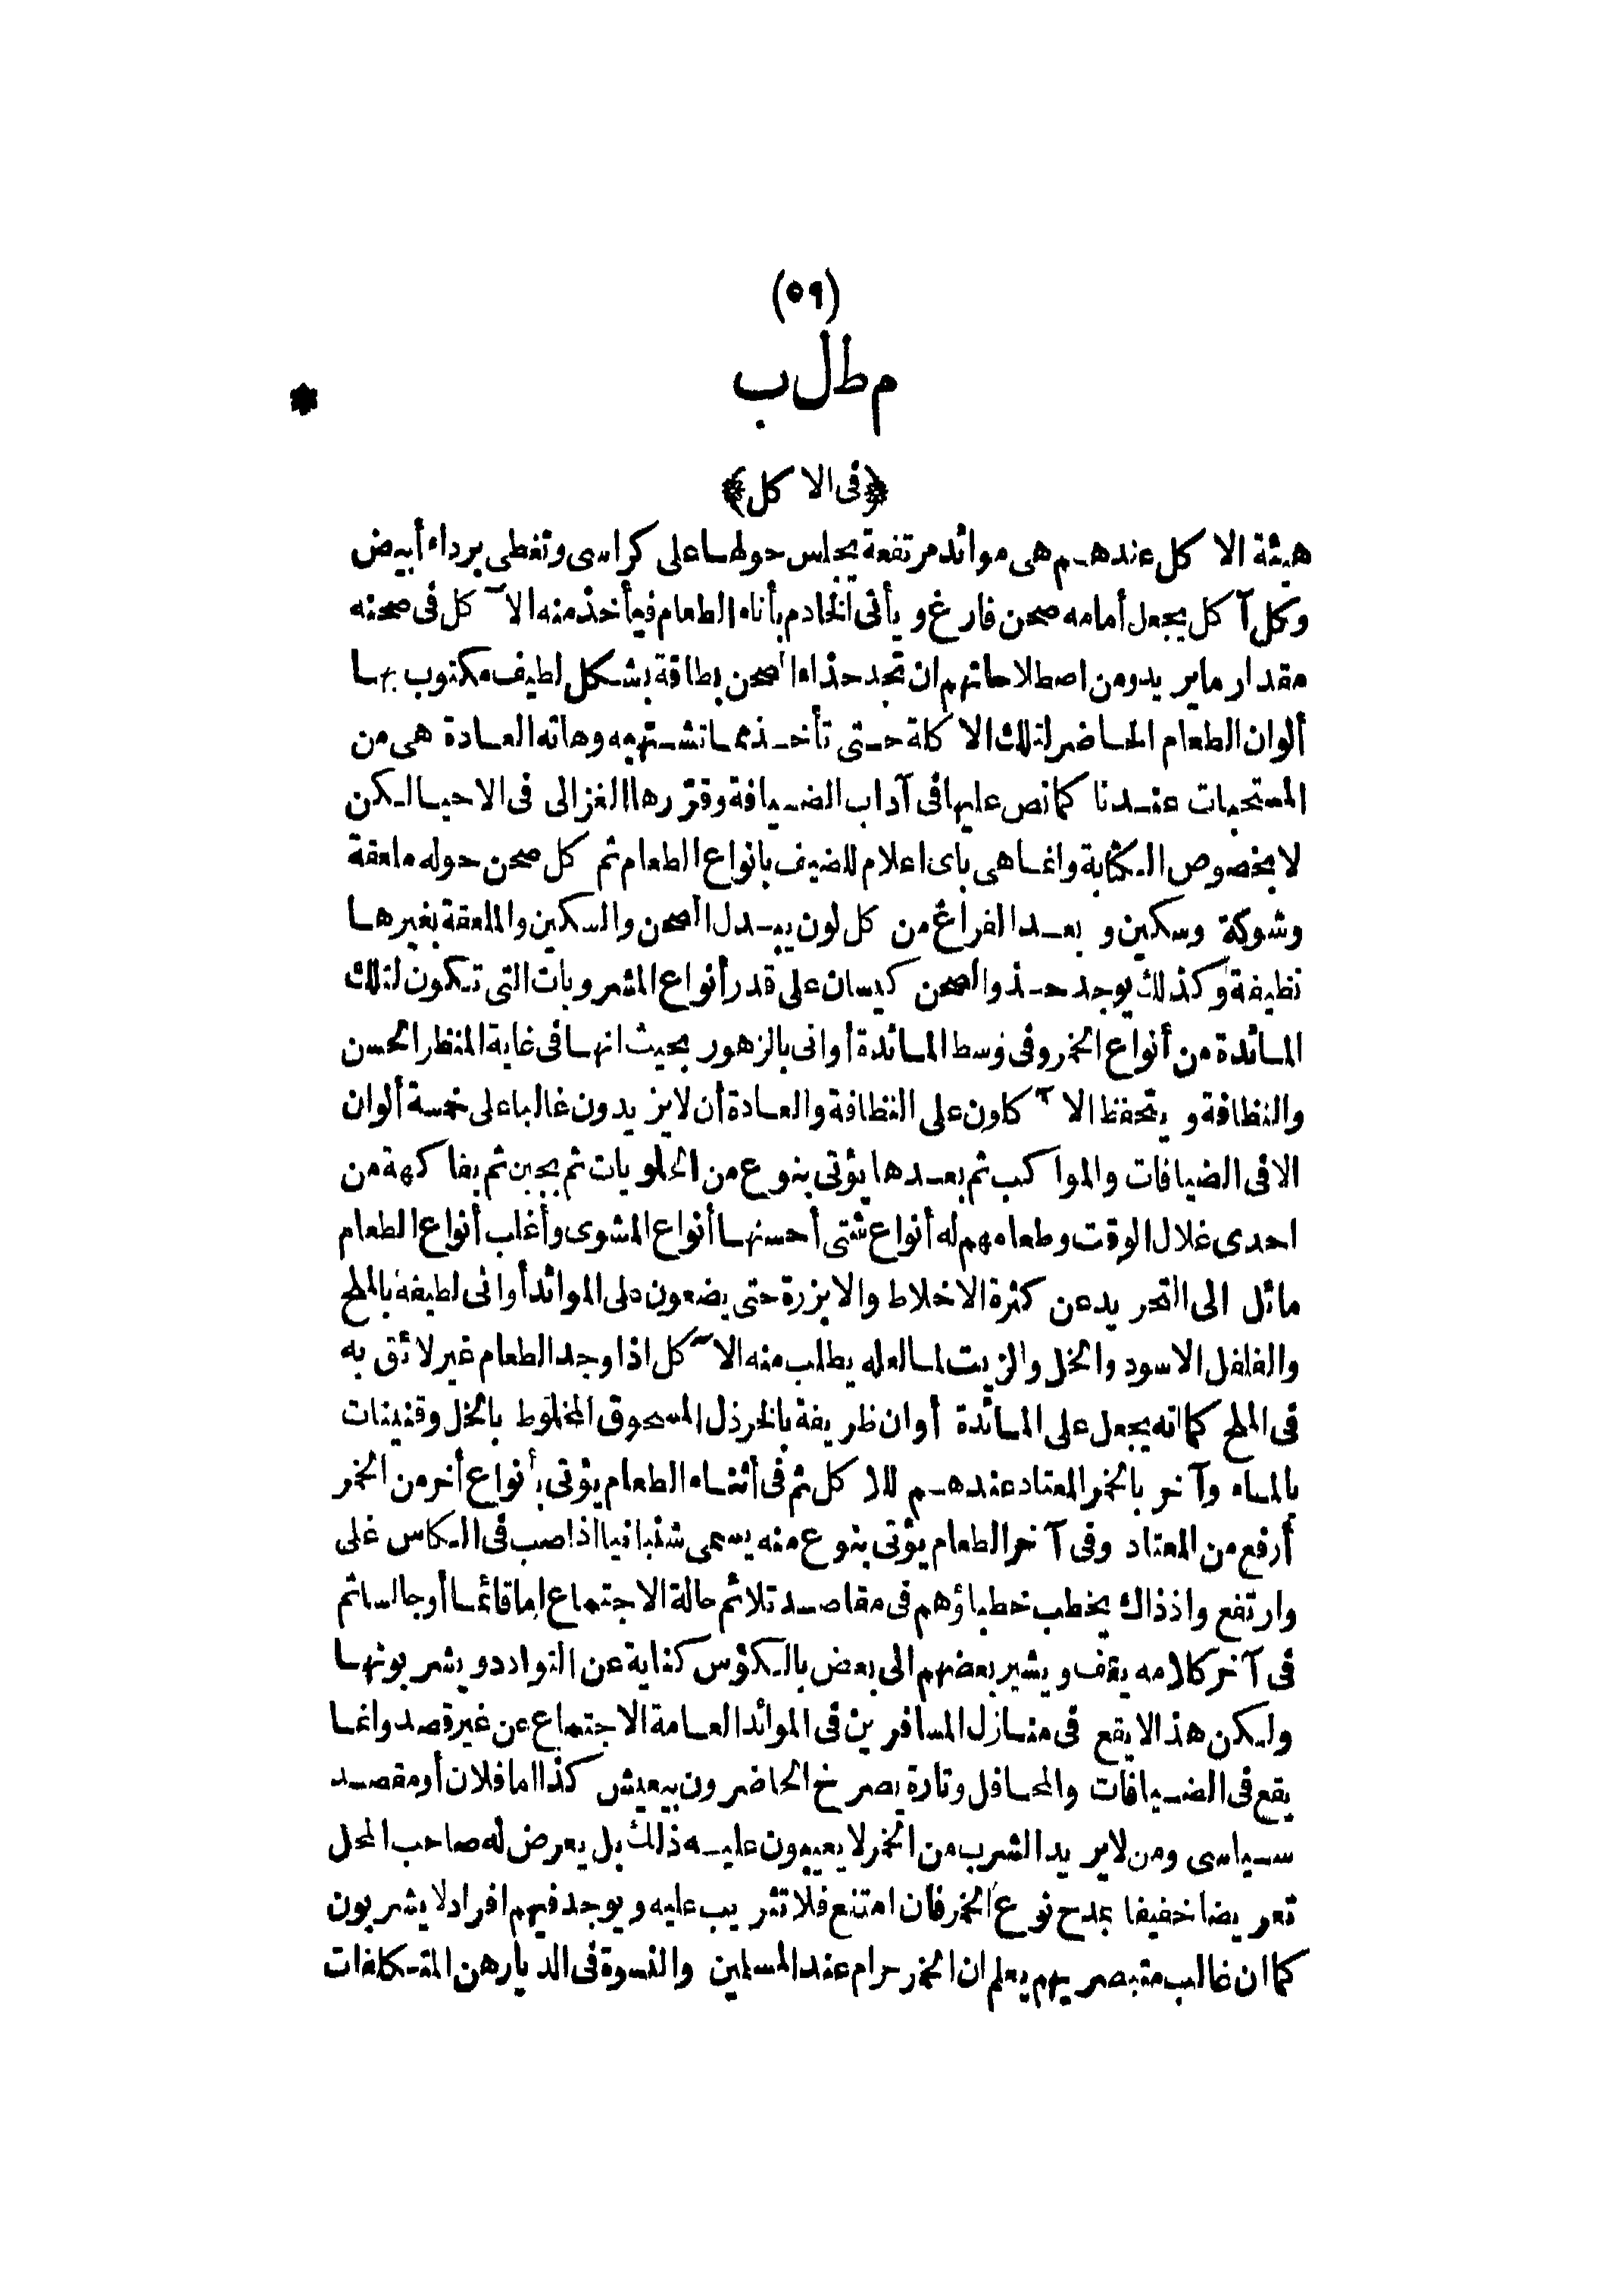 (٥٩)
مطلب
*
﴿فى الاكل﴾
هيئة الاكل عندهم هى موائد مرتفعة يجلس حولها على كراسى وتغطى برداء أبيض
وكل آكل يجعل أمامه صحن فارغ ويأتى الخادم بأناء الطعام فيأخذ منه الآكل فى صحنه
مقدار مايريد ومن اصطلاحاتهم ان تجد حذاء الصحن بطاقة بشكل لطيف مكتوب بها
ألوان الطعام الحاضر لتلك الاكلة حتى تأخذ مما تشتهيه وهاته العادة هى من
المستحبات عندنا كما نص عليها فى آداب الضيافة وقررها الغزالى فى الاحيا لكن
لا بخصوص الكتابة وانما هى باى اعلام للضيف بانواع الطعام ثم كل صحن حوله ملعقة
وشوكة وسكين وبعد الفراغ من كل لون يبدل الصحن والسكين والملعقة بغيرها
نظيفة وكذلك يوجد حذو الصحن كيسان على قدر أنواع المشروبات التى تكون لتلك
المائدة من أنواع الخمر وفى وسط المائدة أوانى بالزهور بحيث انها فى غاية المنظر الحسن
والنظافة ويتحفظ الآكلون على النظافة والعادة أن لا يزيدون غالبا على خمسة ألوان
الا فى الضيافات والمواكب ثم بعدها يؤتى بنوع من الحلويات ثم بجبن ثم بفاكهة من
احدى غلال الوقت وطعامهم له أنواع شتى أحسنها أنواع المشوى وأغلب أنواع الطعام
مائل الى التجريد عن كثرة الاخلاط والابزرة حتى يضعون على الموائد أوانى لطيفة بالملح
والفلفل الاسود والخل والزيت لما لعله يطلب منه الآكل اذا وجد الطعام غير لائق به
فى الملح كما انه يجعل على المائدة أوان ظريفة بالخرذل المسحوق المخلوط بالخل وقنينات
بالماء وآخر بالخمر المعتاد عندهم للاكل ثم فى أثناء الطعام يؤتى بأنواع أخر من الخمر
أرفع من المعتاد وفى آخر الطعام يؤتى بنوع منه يسمى شنبانيا اذا صب فى الكاس غلى
وارتفع واذ ذاك يخطب خطباؤهم فى مقاصد تلائم حالة الاجتماع اما قائما أو جالسا ثم
فى آخر كلامه يقف ويشير بعضهم الى بعض بالكؤس كناية عن التوادد ويشربونها
ولكن هذا لا يقع فى منازل المسافرين فى الموائد العامة الاجتماع عن غير قصد وانما
يقع فى الضيافات والمحافل وتارة يصرخ الحاضرون بيعيش كذا اما فلان أو مقصد
سياسى ومن لا يريد الشرب من الخمر لا يعيبون عليه ذلك بل يعرض له صاحب المحل
تعريضا خفيفا بمدح نوع الخمر فان امتنع فلا تثريب عليه ويوجد فيهم افراد لا يشربون
كما ان غالب متبصريهم يعلم ان الخمر حرام عند المسلمين والنسوة فى الديار هن المتكلفات